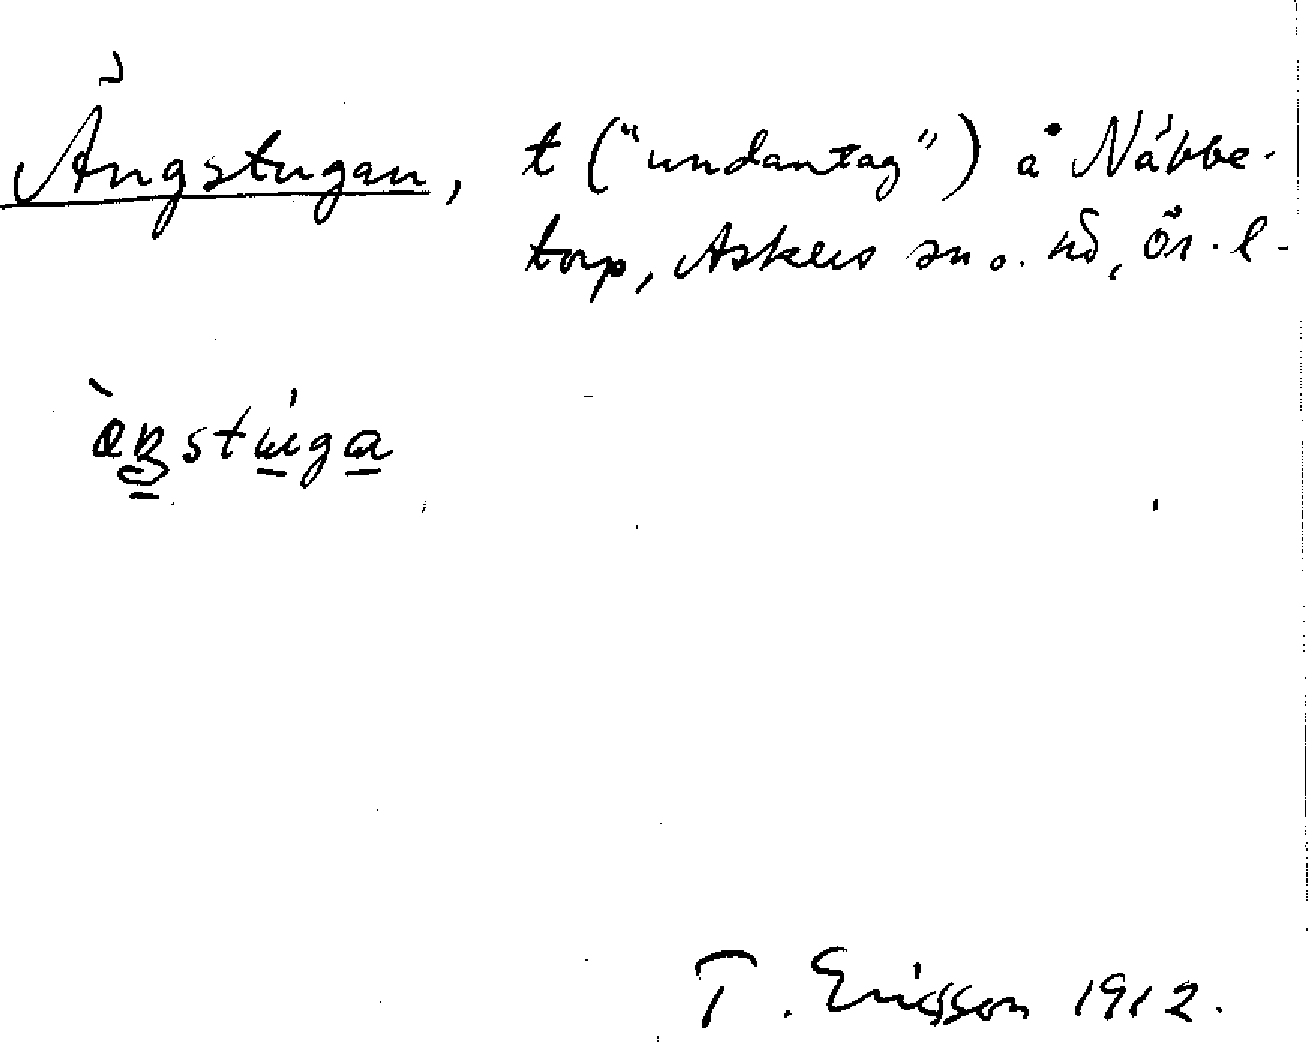 Ängstugan, t ("undantag") å Näbbe-
torp, Askers sn o. hd, Ör. l-
T. Ericsson 1912.